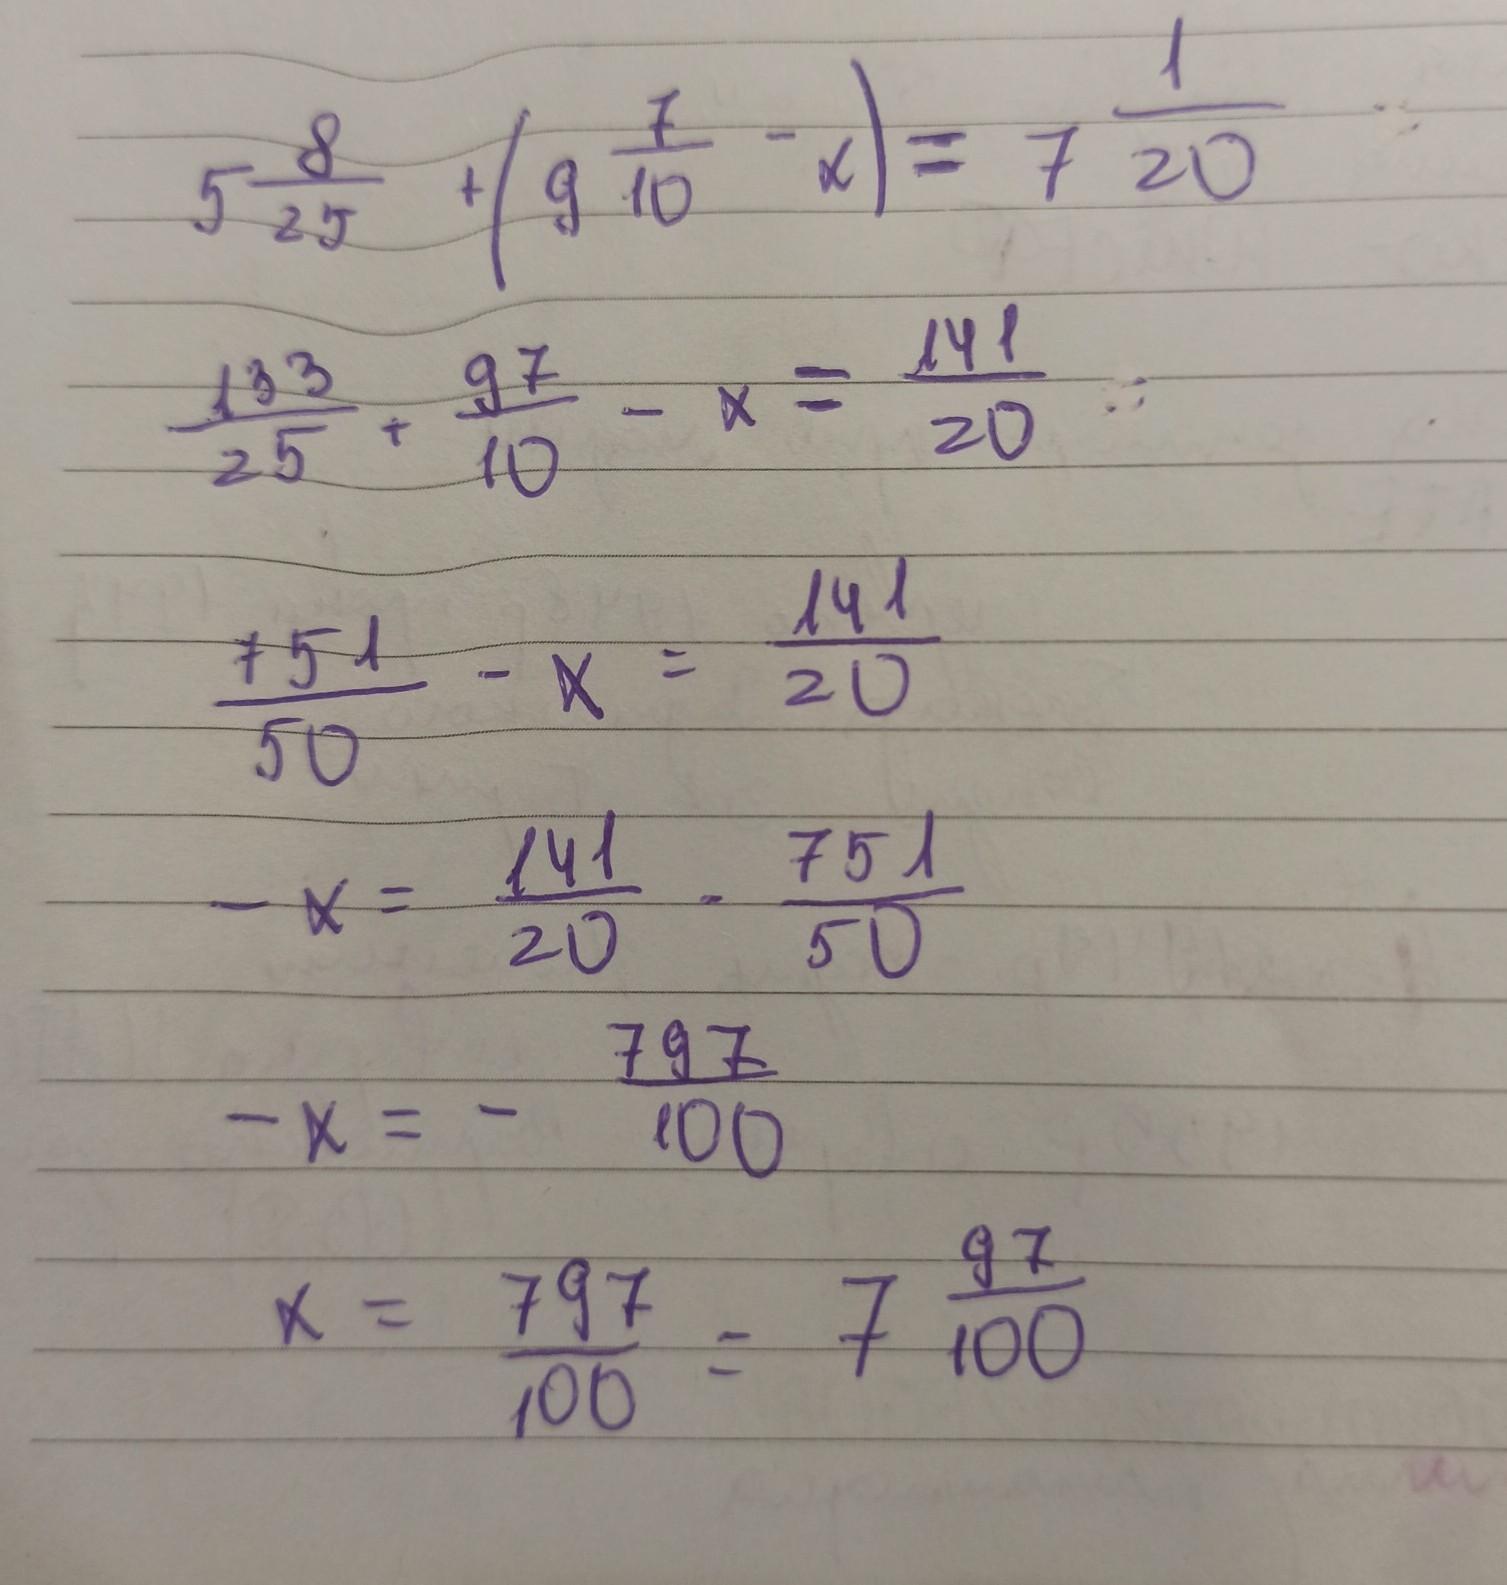 5 8/25 + (9 7/10 - x) = 7 1/20
133/25 + 97/10 - x = 141/20
751/50 - x = 141/20
- x = 141/20 - 751/50
- x = - 797/100
x = 797/100 = 7 97/100